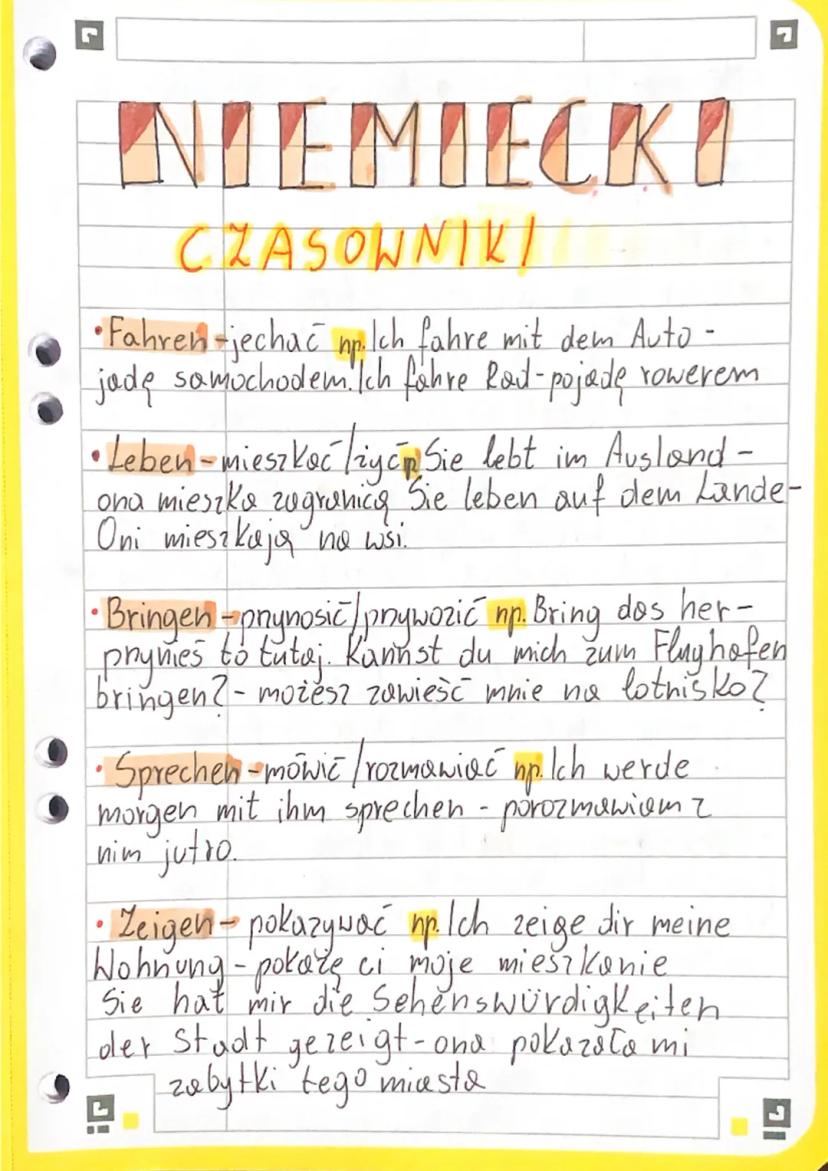 NIEMIECKI
CZASOWNIKI
• Fahren - jechać np. Ich fahre mit dem Auto -
jadę samochodem. Ich fahre Rad - pojadę rowerem
• Leben - mieszkać/żyć np Sie lebt im Ausland -
ona mieszka zagranicą Sie leben auf dem Lande -
Oni mieszkają na wsi.
• Bringen - przynosić/przywozić np. Bring das her -
przynieś to tutaj. Kannst du mich zum Flughafen
bringen? - możesz zawieść mnie na lotnisko?
• Sprechen - mówić/rozmawiać np. Ich werde
morgen mit ihm sprechen - porozmawiam z
nim jutro.
• Zeigen - pokazywać np. Ich zeige dir meine
Wohnung - pokażę ci moje mieszkanie
Sie hat mir die Sehenswürdigkeiten
der Stadt gezeigt - ona pokazała mi
zabytki tego miasta